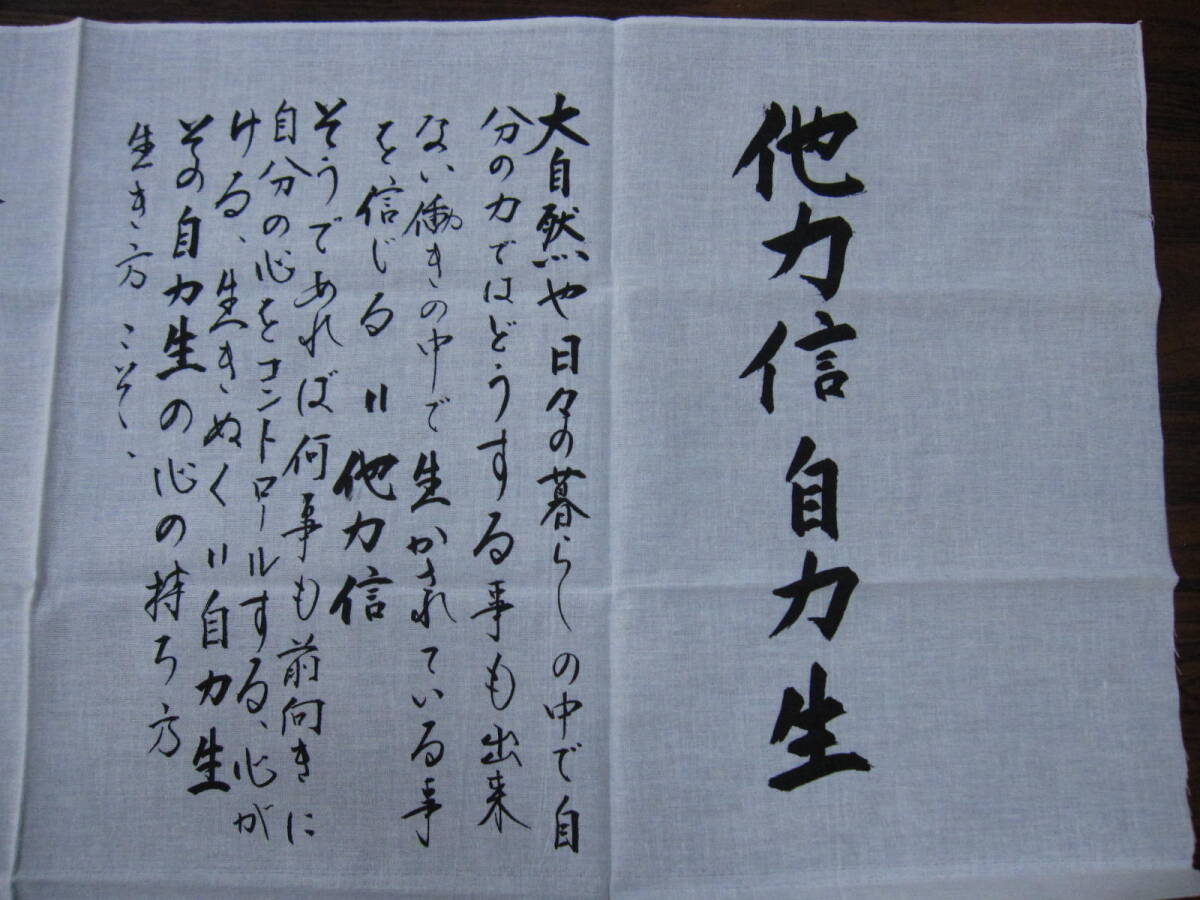 他力信自力生
大自然や日々の暮らしの中で自
分の力ではどうする事も出来
ない働きの中で生かされている事
を信じる〃他力信
そうであれば何事も前向きに
自分の心をコントロールする、心が
ける、生きぬく〃自力生
その自力生の心の持ち方
生き方こそ、